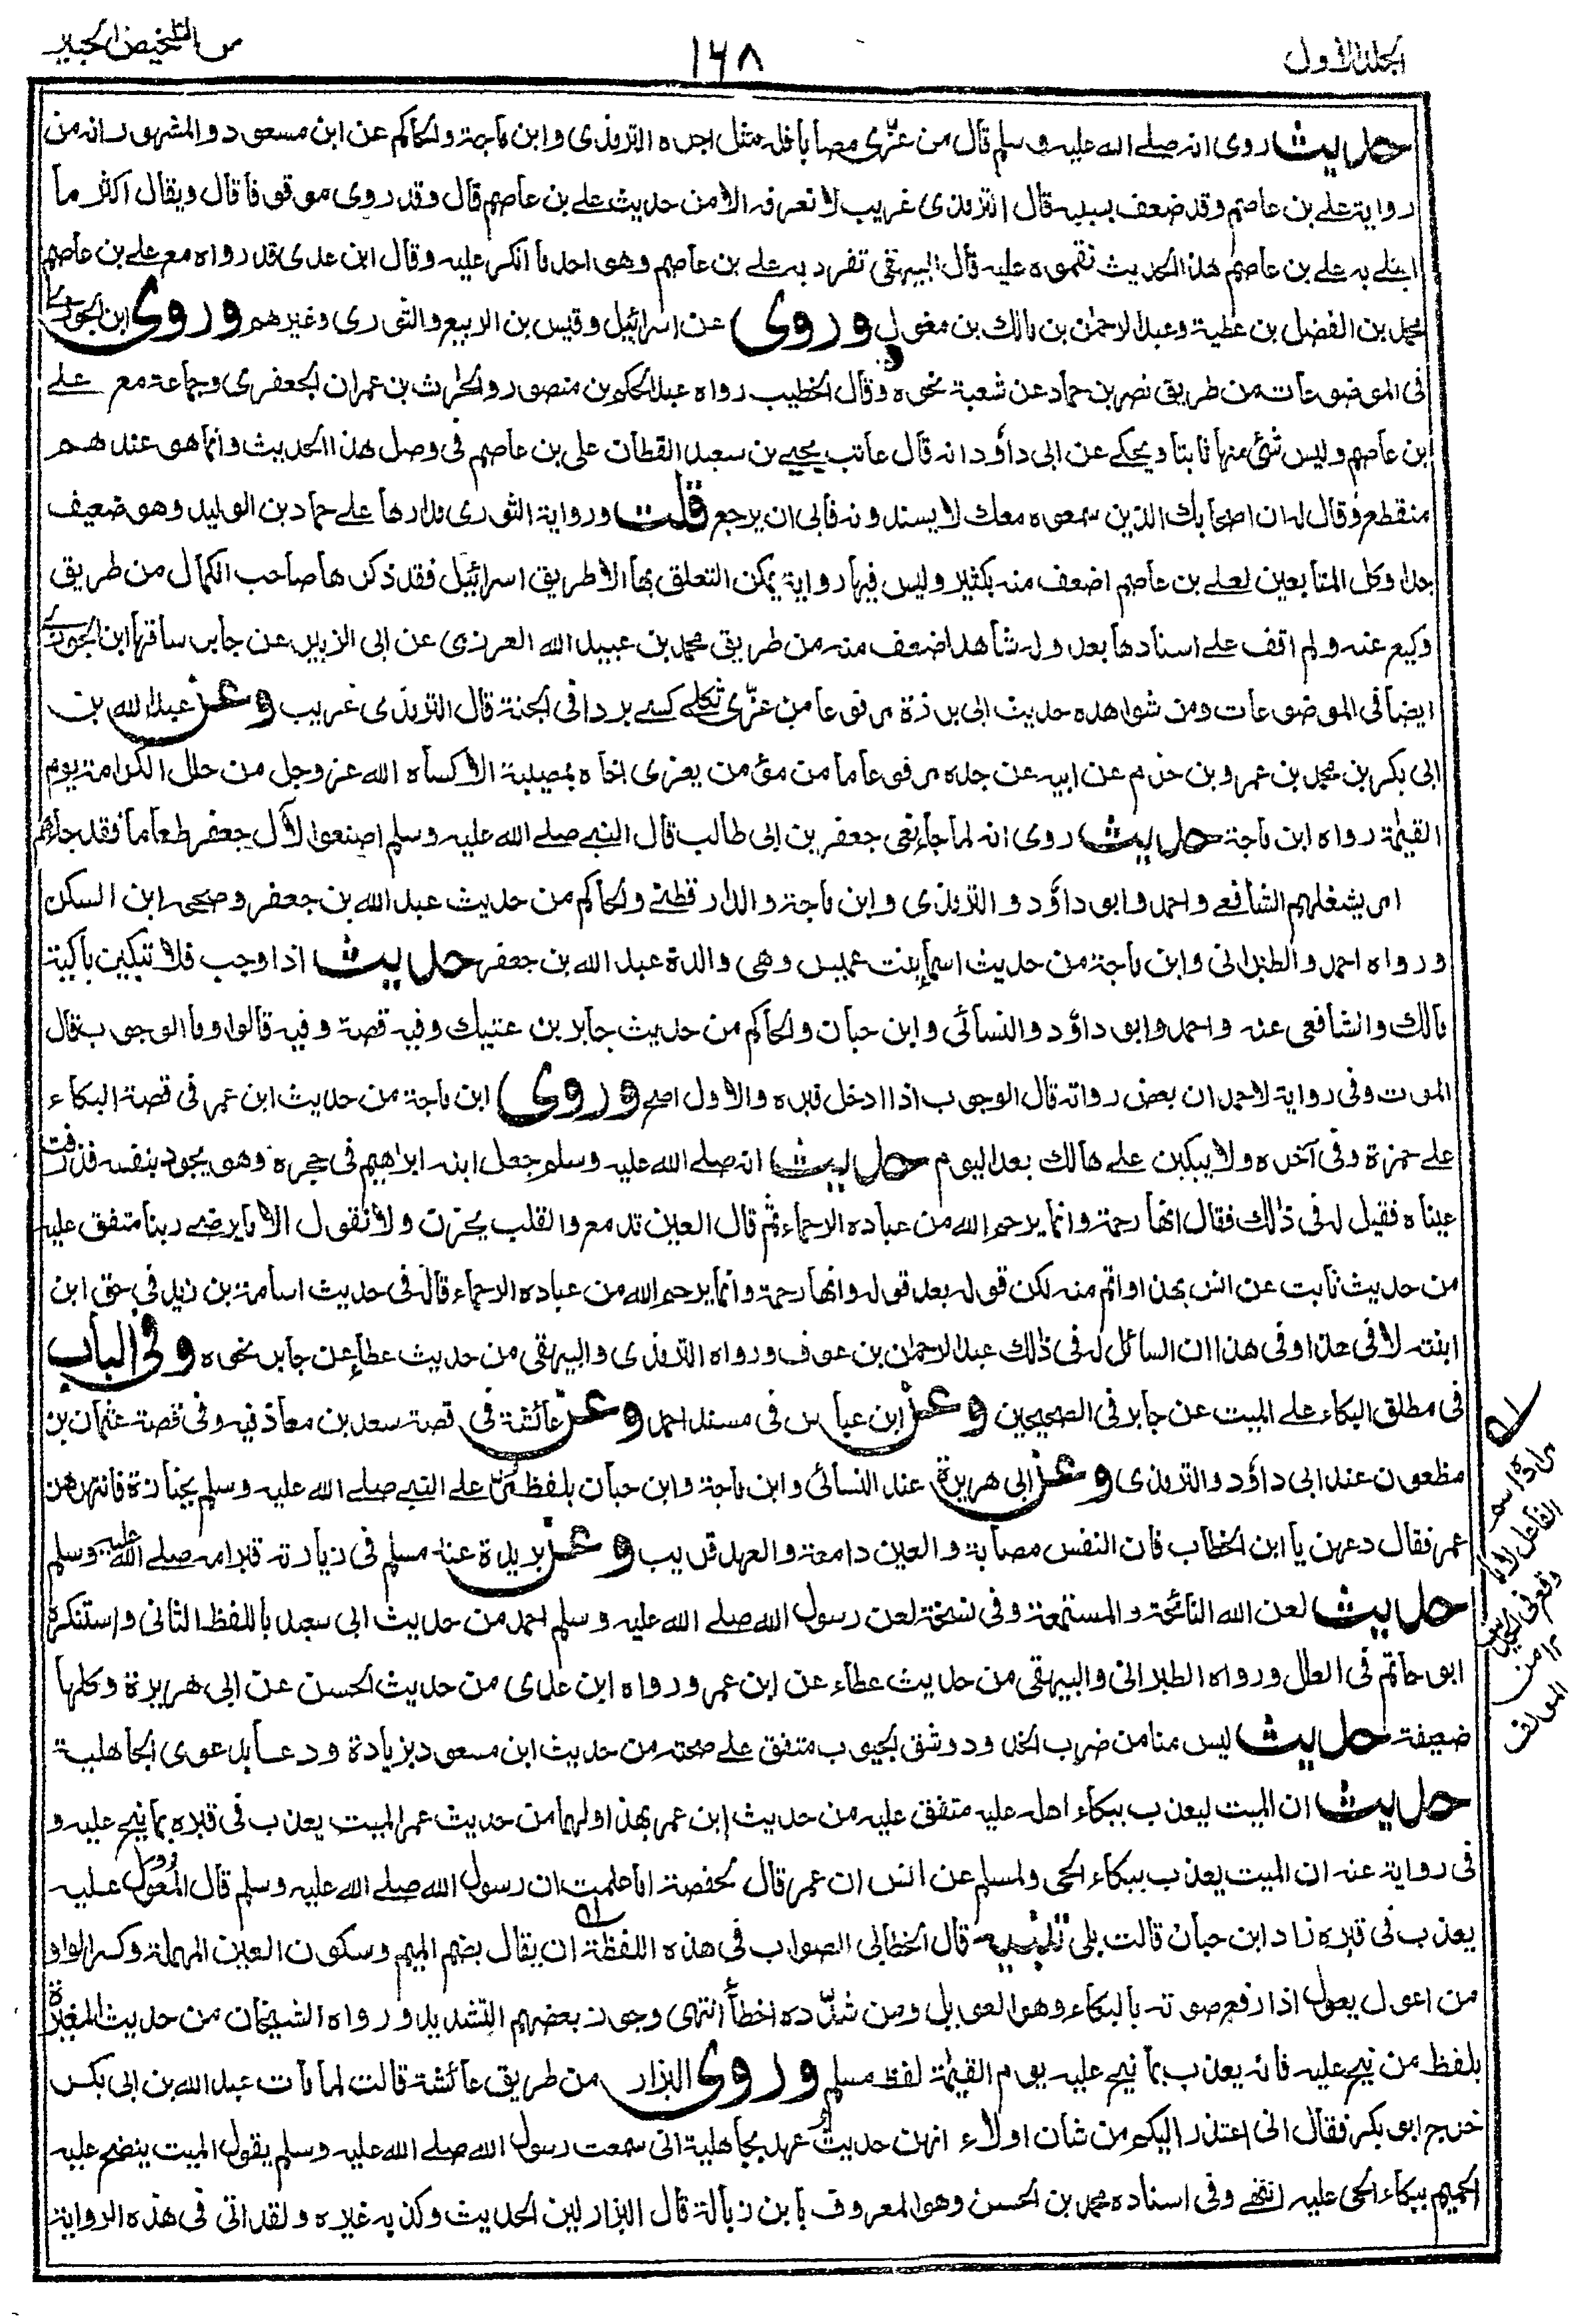 المجلد الاول
١٦٨
من التلخيص الحبير
حديث روى انه صلے الله عليه وسلم قال من عزّى مصابا فله مثل اجره الترمذى وابن ماجة والحاكم عن ابن مسعود والمشهور انه من
رواية علے بن عاصم وقد ضعف بسببه قال الترمذى غريب لا نعرفه الا من حديث علے بن عاصم قال وقد روى موقوفا قال ويقال اكثر ما
ابتلے به علے بن عاصم هذا الحديث نقموه عليه قال البيهقى تفرد به علے بن عاصم وهو احد ما انكر عليه وقال ابن عدى قد رواه مع علے بن عاصم
محمد بن الفضل بن عطية وعبد الرحمٰن بن مالك بن مغول وروى عن اسرائيل وقيس بن الربيع والثورى وغيرهم وروى ابن الجوزے
فى الموضوعات من طريق نصر بن حماد عن شعبة نحوه وقال الخطيب رواه عبد الحكم بن منصور والحٰرث بن عمران الجعفرى وجماعة مع علے
ابن عاصم وليس شئ منها ثابتا ويحكے عن ابى داوٗد انه قال عاتب يحيے بن سعيد القطان على بن عاصم فى وصل هذا الحديث وانما هو عندهم
منقطع وقال له ان اصحابك الذين سمعوه معك لا يسندونه فابى ان يرجع قلت ورواية الثورى مدارها علے حماد بن الوليد وهو ضعيف
جدا وكل المتابعين لعلے بن عاصم اضعف منه بكثير وليس فيها رواية يمكن التعلق بها الا طريق اسرائيل فقد ذكرها صاحب الكمال من طريق
وكيع عنه ولم اقف علے اسنادها بعد وله شاهد اضعف منه من طريق محمد بن عبيد الله العرزمى عن ابى الزبير عن جابر ساقها ابن الجوزے
ايضا فى الموضوعات ومن شواهده حديث ابى برزة مرفوعا من عزّى ثكلے كسے بردا فى الجنة قال الترمذى غريب وعن عبد الله بن
ابى بكر بن محمد بن عمرو بن حزم عن ابيه عن جده مرفوعا ما من مؤمن يعزى اخاه بمصيبة الا كساه الله عز وجل من حلل الكرامة يوم
القيٰمة رواه ابن ماجة حديث روى انه لما جاء نعى جعفر بن ابى طالب قال النبے صلے الله عليه وسلم اصنعوا لآل جعفر طعاما فقد جاءهم
امر يشغلهم الشافعے واحمد وابو داوٗد والترمذى وابن ماجة والدارقطنے والحاكم من حديث عبد الله بن جعفر وصححه ابن السكن
ورواه احمد والطبرانى وابن ماجة من حديث اسماء بنت عميس وهى والدة عبد الله بن جعفر حديث اذا وجب فلا تبكين باكية
مالك والشافعى عنه واحمد وابو داوٗد والنسائى وابن حبان والحاكم من حديث جابر بن عتيك وفيه قصة وفيه قالوا وما الوجوب قال
الموت وفى رواية لاحمد ان بعض رواته قال الوجوب اذا ادخل قبره والاول اصح وروى ابن ماجة من حديث ابن عمر فى قصة البكاء
علے حمزة وفى آخره ولا يبكين علے هالك بعد اليوم حديث انه صلے الله عليه وسلم جعل ابنه ابراهيم فى حجره وهو يجود بنفسه فذرفت
عيناه فقيل له فى ذلك فقال انها رحمة وانما يرحم الله من عباده الرحماء ثم قال العين تدمع والقلب يحزن ولا نقول الا ما يرضے ربنا متفق عليه
من حديث ثابت عن انس بهذا واتم منه لكن قوله بعد قوله وانها رحمة وانما يرحم الله من عباده الرحماء قاله فى حديث اسامة بن زيد فى حق ابن
ابنته لا فى هذا وفى هذا ان السائل له فى ذلك عبد الرحمٰن بن عوف ورواه الترمذى والبيهقى من حديث عطاء عن جابر نحوه وفى الباب
فى مطلق البكاء علے الميت عن جابر فى الصحيحين وعن ابن عباس فى مسند احمد وعن عائشة فى قصة سعد بن معاذ فيه وفى قصة عثمان بن
مظعون عند ابى داوٗد والترمذى وعن ابى هريرة عند النسائى وابن ماجة وابن حبان بلفظ مُرّ علے النبے صلے الله عليه وسلم بجنازة فانتهرهن
عمر فقال دعهن يا ابن الخطاب فان النفس مصابة والعين دامعة والعهد قريب وعن بريدة عند مسلم فى زيارته قبر امه صلے الله عليه وسلم
حديث لعن الله النائحة والمستمعة وفى نسخة لعن رسول الله صلے الله عليه وسلم احمد من حديث ابى سعيد باللفظ الثانى واستنكره
ابو حاتم فى العلل ورواه الطبرانى والبيهقى من حديث عطاء عن ابن عمر ورواه ابن عدى من حديث الحسن عن ابى هريرة وكلها
ضعيفة حديث ليس منا من ضرب الخدود وشق الجيوب متفق علے صحته من حديث ابن مسعود بزيادة ودعا بدعوى الجاهلية
حديث ان الميت ليعذب ببكاء اهله عليه متفق عليه من حديث ابن عمر بهذا ولهما من حديث عمر الميت يعذب فى قبره بما نيح عليه و
فى رواية عنه ان الميت يعذب ببكاء الحى ولمسلم عن انس ان عمر قال لحفصة اما علمت ان رسول الله صلے الله عليه وسلم قال المُعوَل عليه
يعذب فى قبره زاد ابن حبان قالت بلى تنبيه قال الخطابى الصواب فى هذه اللفظة ان يقال بضم الميم وسكون العين المهملة وكسر الواو
من اعول يعول اذا رفع صوته بالبكاء وهو العويل ومن شدّده اخطأ انتهى وجوز بعضهم التشديد ورواه الشيخان من حديث المغيرة
بلفظ من نيح عليه فانه يعذب بما نيح عليه يوم القيٰمة لفظ مسلم وروى البزار من طريق عائشة قالت لما مات عبد الله بن ابى بكر
خرج ابو بكر فقال انى اعتذر اليكم من شان اولاء انهن حديثو عهد بجاهلية انى سمعت رسول الله صلے الله عليه وسلم يقول الميت ينضح عليه
الحميم ببكاء الحى عليه انتهے وفى اسناده محمد بن الحسن وهو المعروف بابن زبالة قال البزار لين الحديث وكذبه غيره ولقد اتى فى هذه الرواية
مراده اسم
الفاعل لا ما
وقع فى
١٢ من
المؤلف